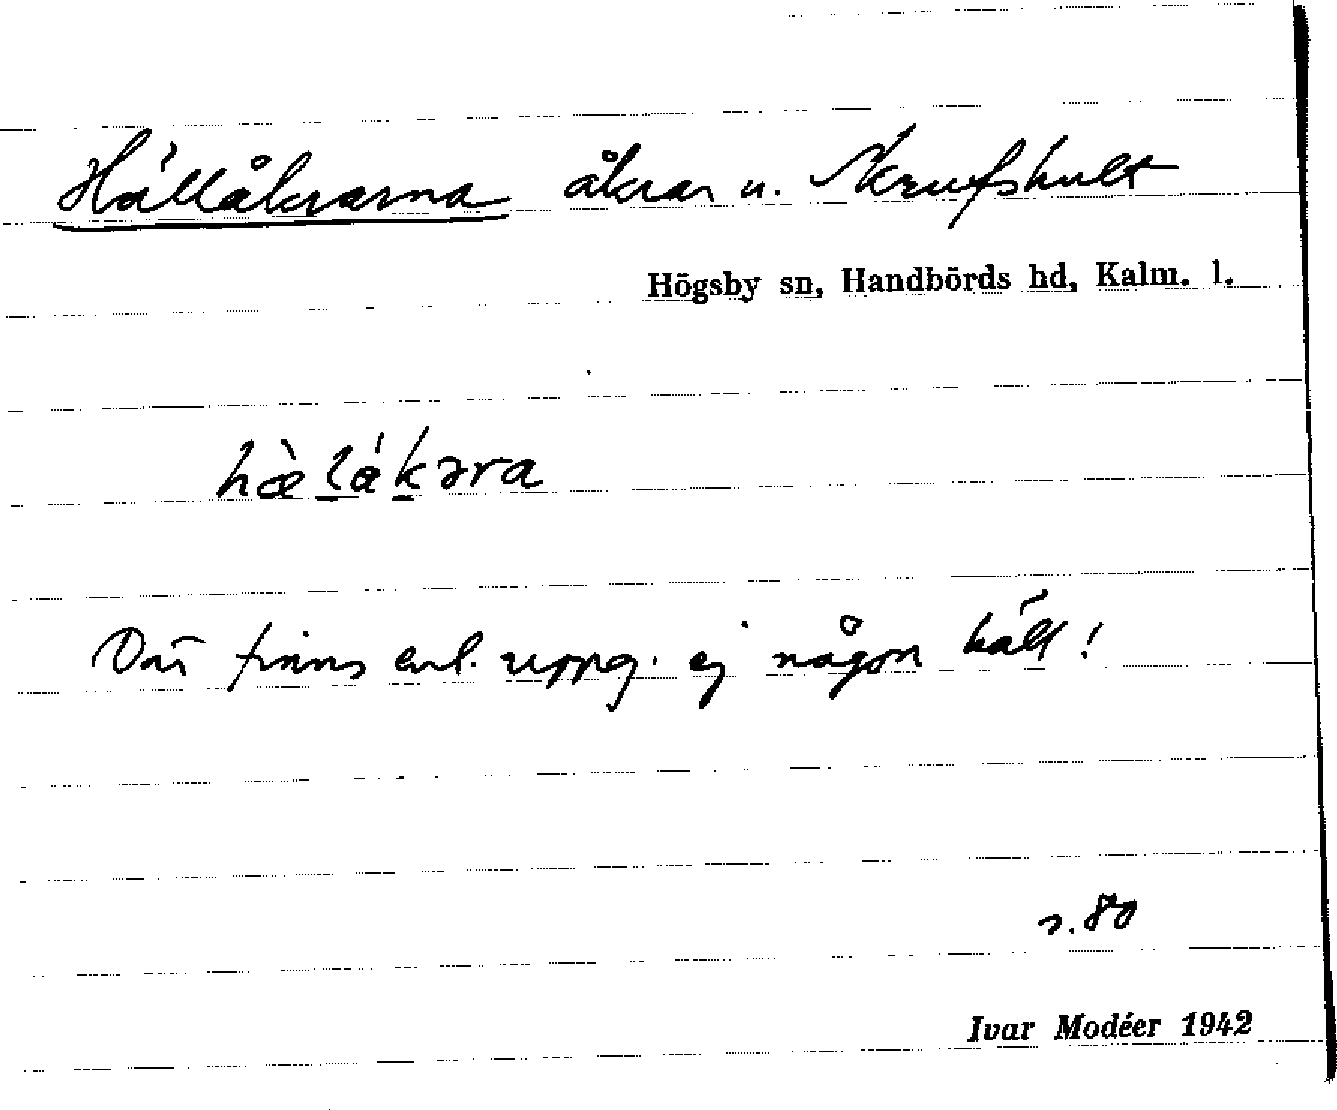 Hällåkrarna åkrar u. Skrufshult
Högsby sn, Handbörds hd, Kalm. l.
hæ̀l̠ák̠əra
Där finns enl. uppg. ej någon häll!
s. 80
Ivar Modéer 1942